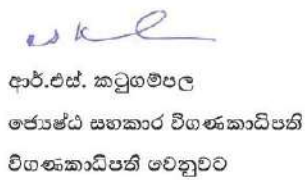 ආර්.එස්. කටුගම්පල
ජ්‍යෙෂ්ඨ සහකාර විගණකාධිපති
විගණකාධිපති වෙනුවට